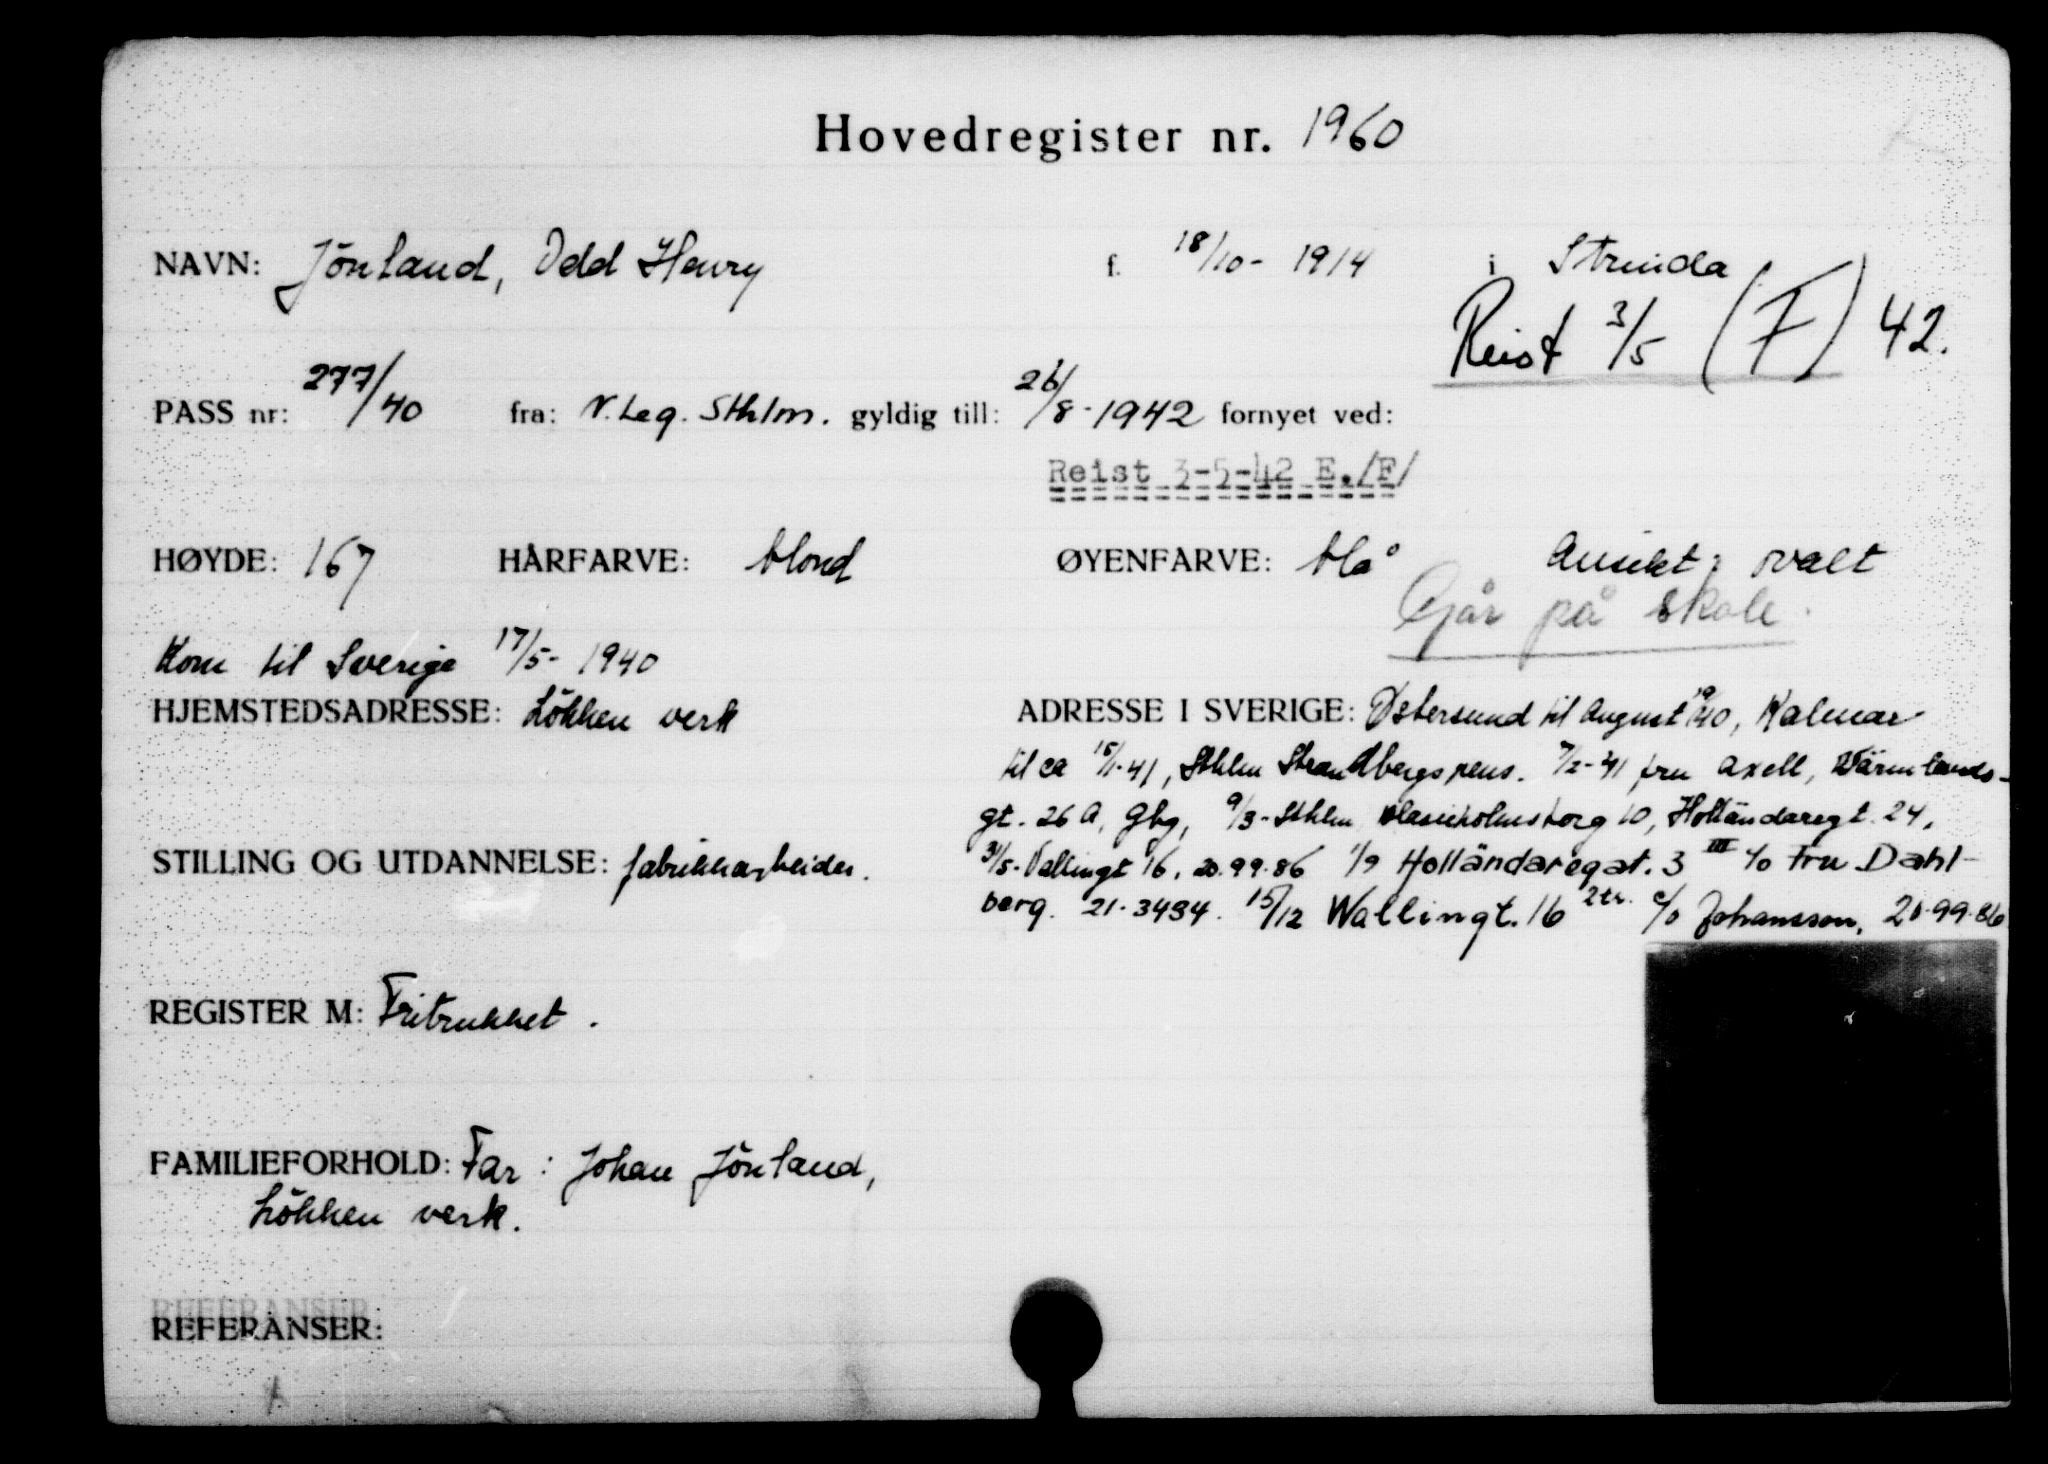 Hovedregister nr. 1960
NAVN: Jönland, Odd Henry f. 18/10- 1914 i Strinda
Reist 3/5 (F) 42.
PASS nr: 277/40 fra: N. Leg. Sthlm. gyldig till: 26/8-1942 fornyet ved:
Reist 3-5-42 E./F/
HØYDE: 167 HÅRFARVE: blond ØYENFARVE: blå Ansikt: ovalt
Går på skole.
Kom til Sverige 17/5- 1940
HJEMSTEDSADRESSE: Lökken verk
ADRESSE I SVERIGE: Østersund til August 1940, Kalmar
til ca 15/1-41, Sthlm Strandbergs pens. 7/2-41 fru Axell, Wärmlands-
gt. 26 A, Gbg, 9/3- Sthlm Blasieholmstorg 10, Holländaregt. 24,
STILLING OG UTDANNELSE: fabrikkarbeider.
31/5- Vallingt 16, 20.99.86 1/9 Holländaregat. 3 III c/o Fru Dahl-
berg. 21-3434. 15/12 Wallingt. 16 2tr. c/o Johansson, 20.99.86
REGISTER M: Fritrukket.
FAMILIEFORHOLD: Far: Johan Jönland,
Lökken verk.
REFERANSER: